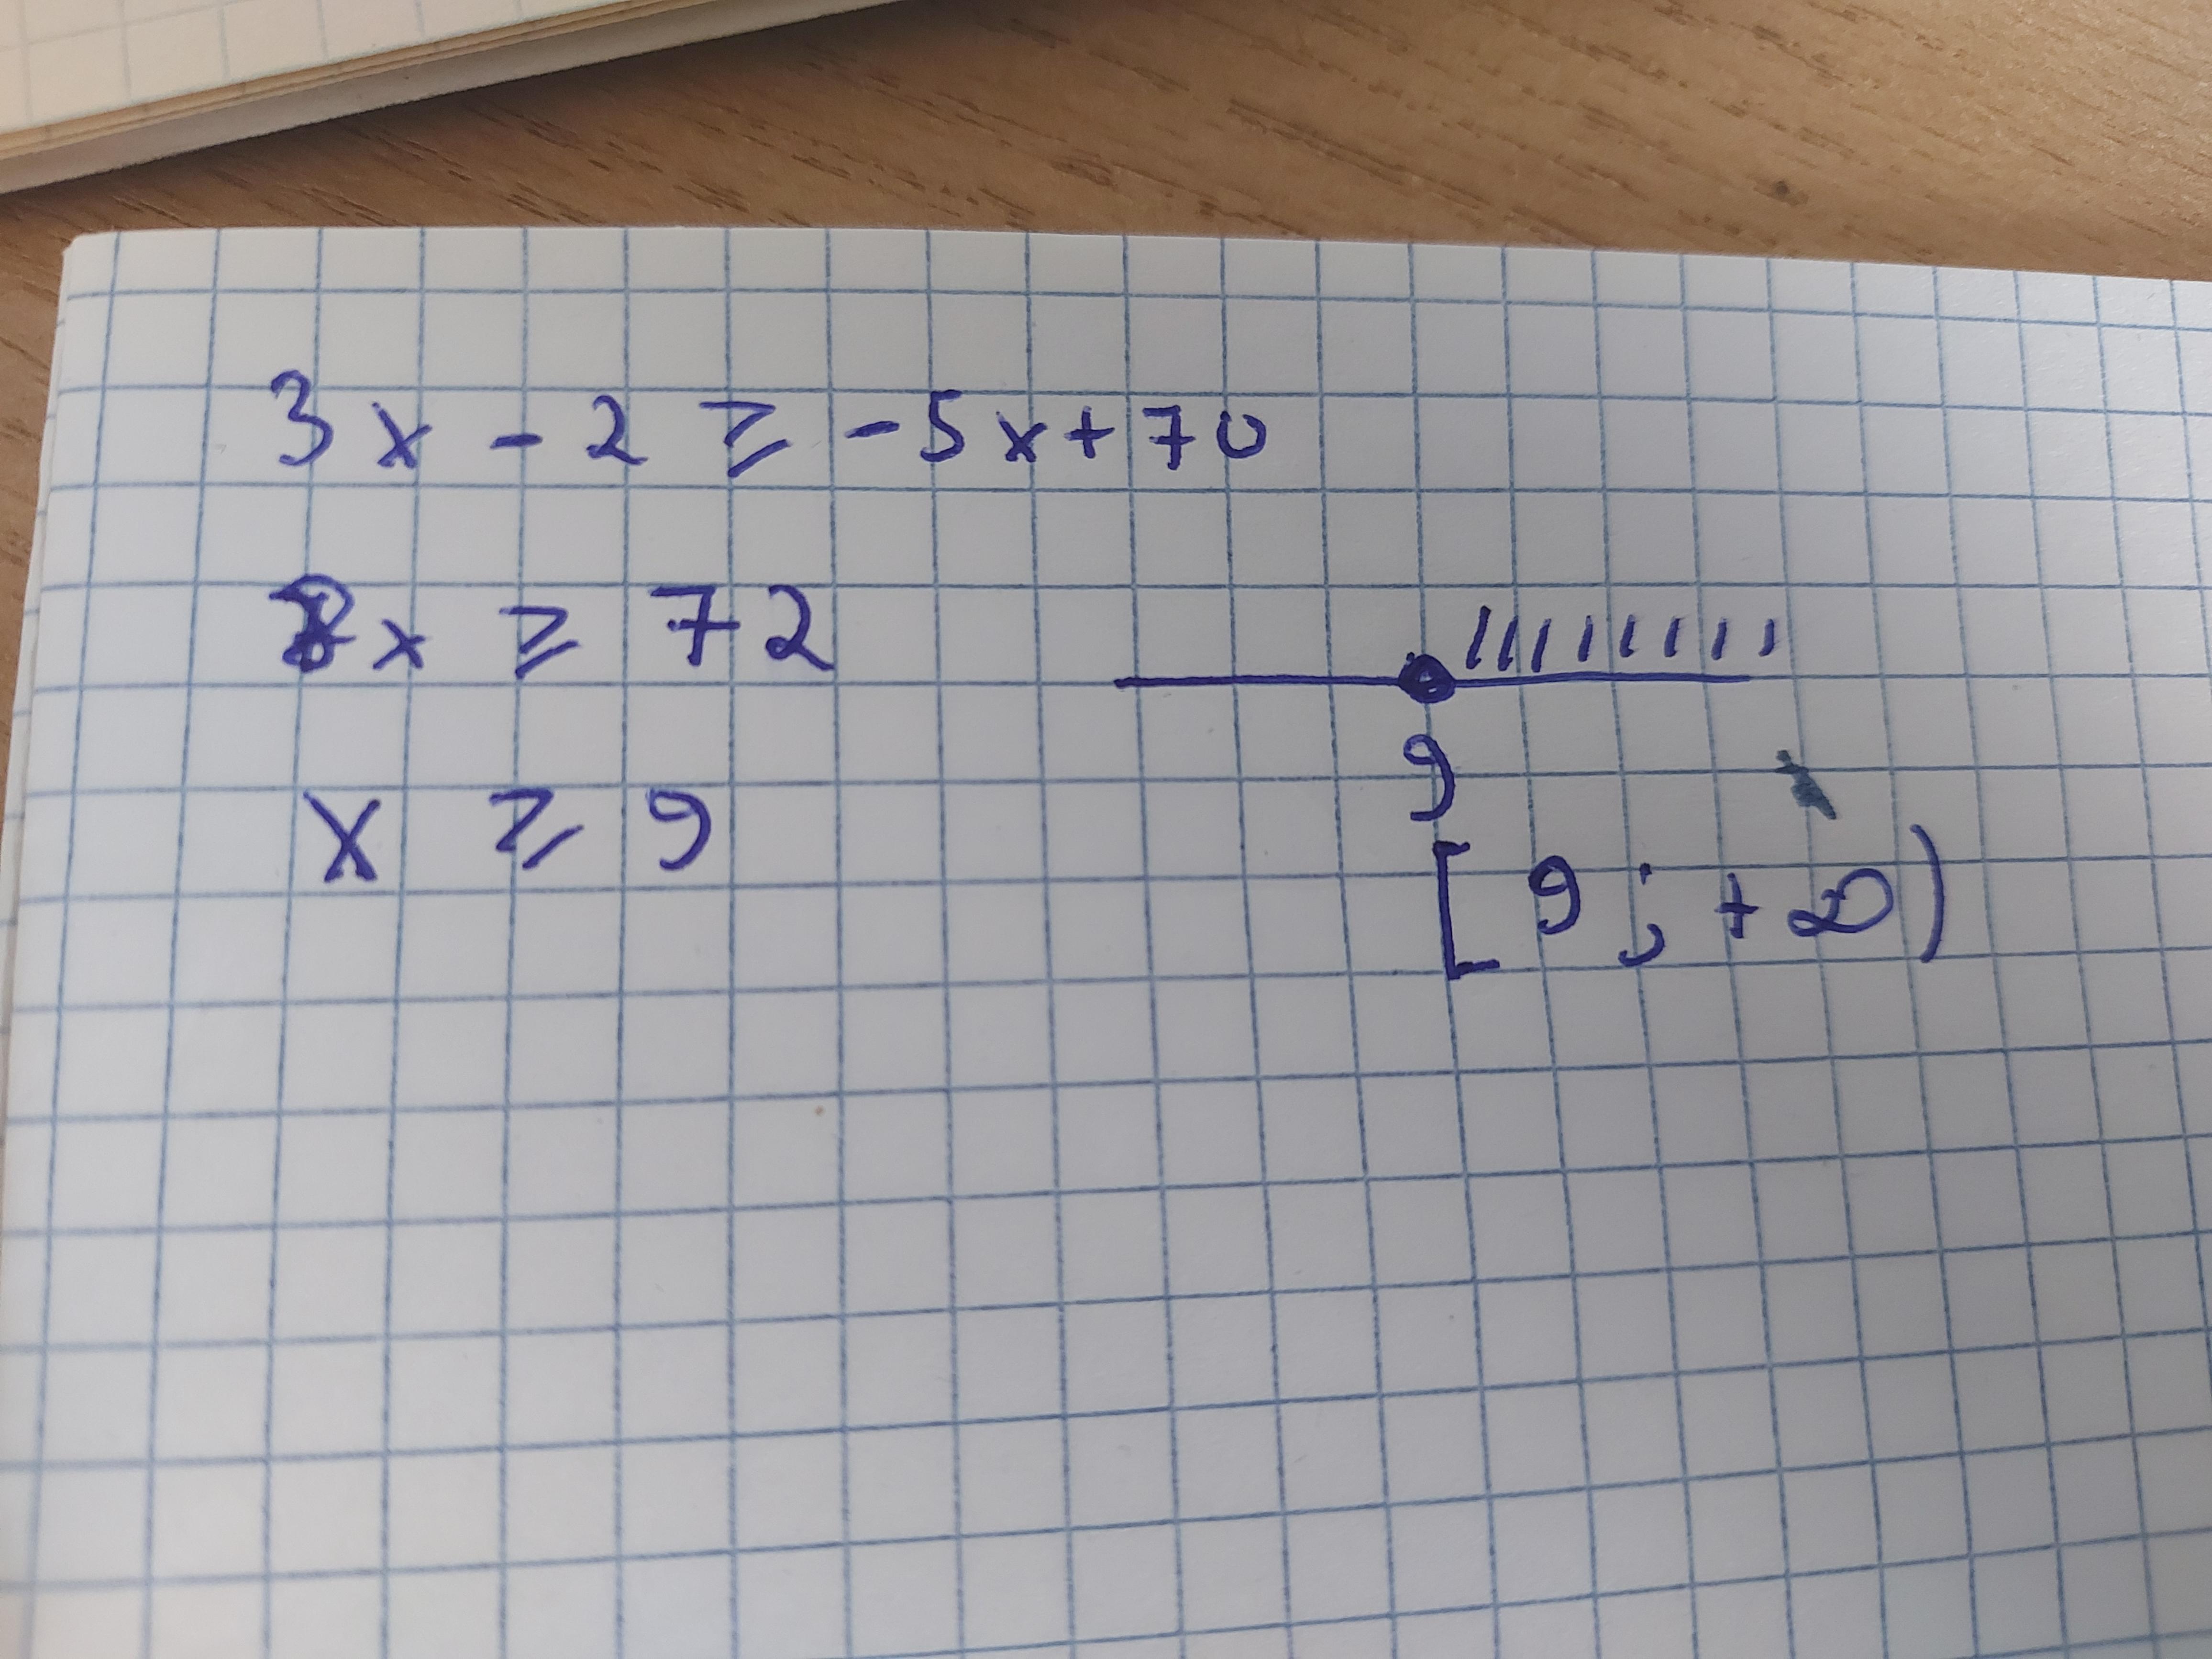 3x - 2 ≥ -5x + 70
8x ≥ 72
x ≥ 9
9
[9; +∞)